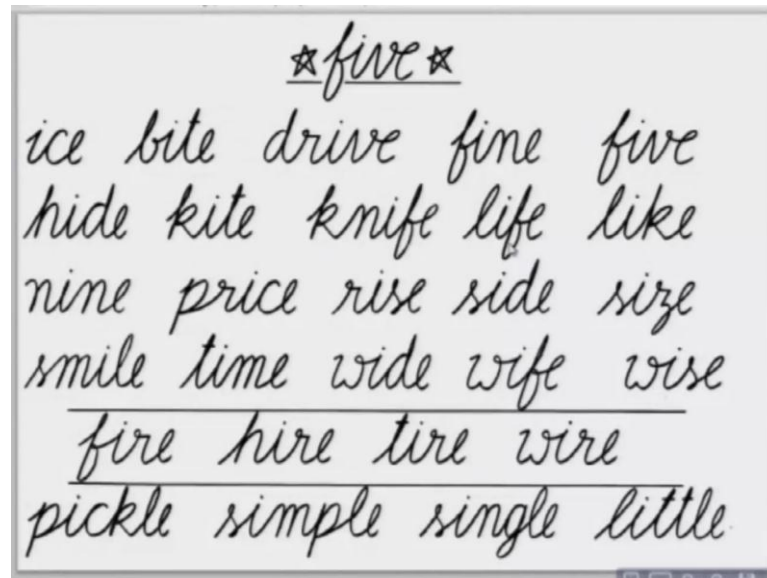 ☆five☆
ice bite drive fine five
hide kite knife life like
nine price rise side size
smile time wide wife wise
fire hire tire wire
pickle simple single little